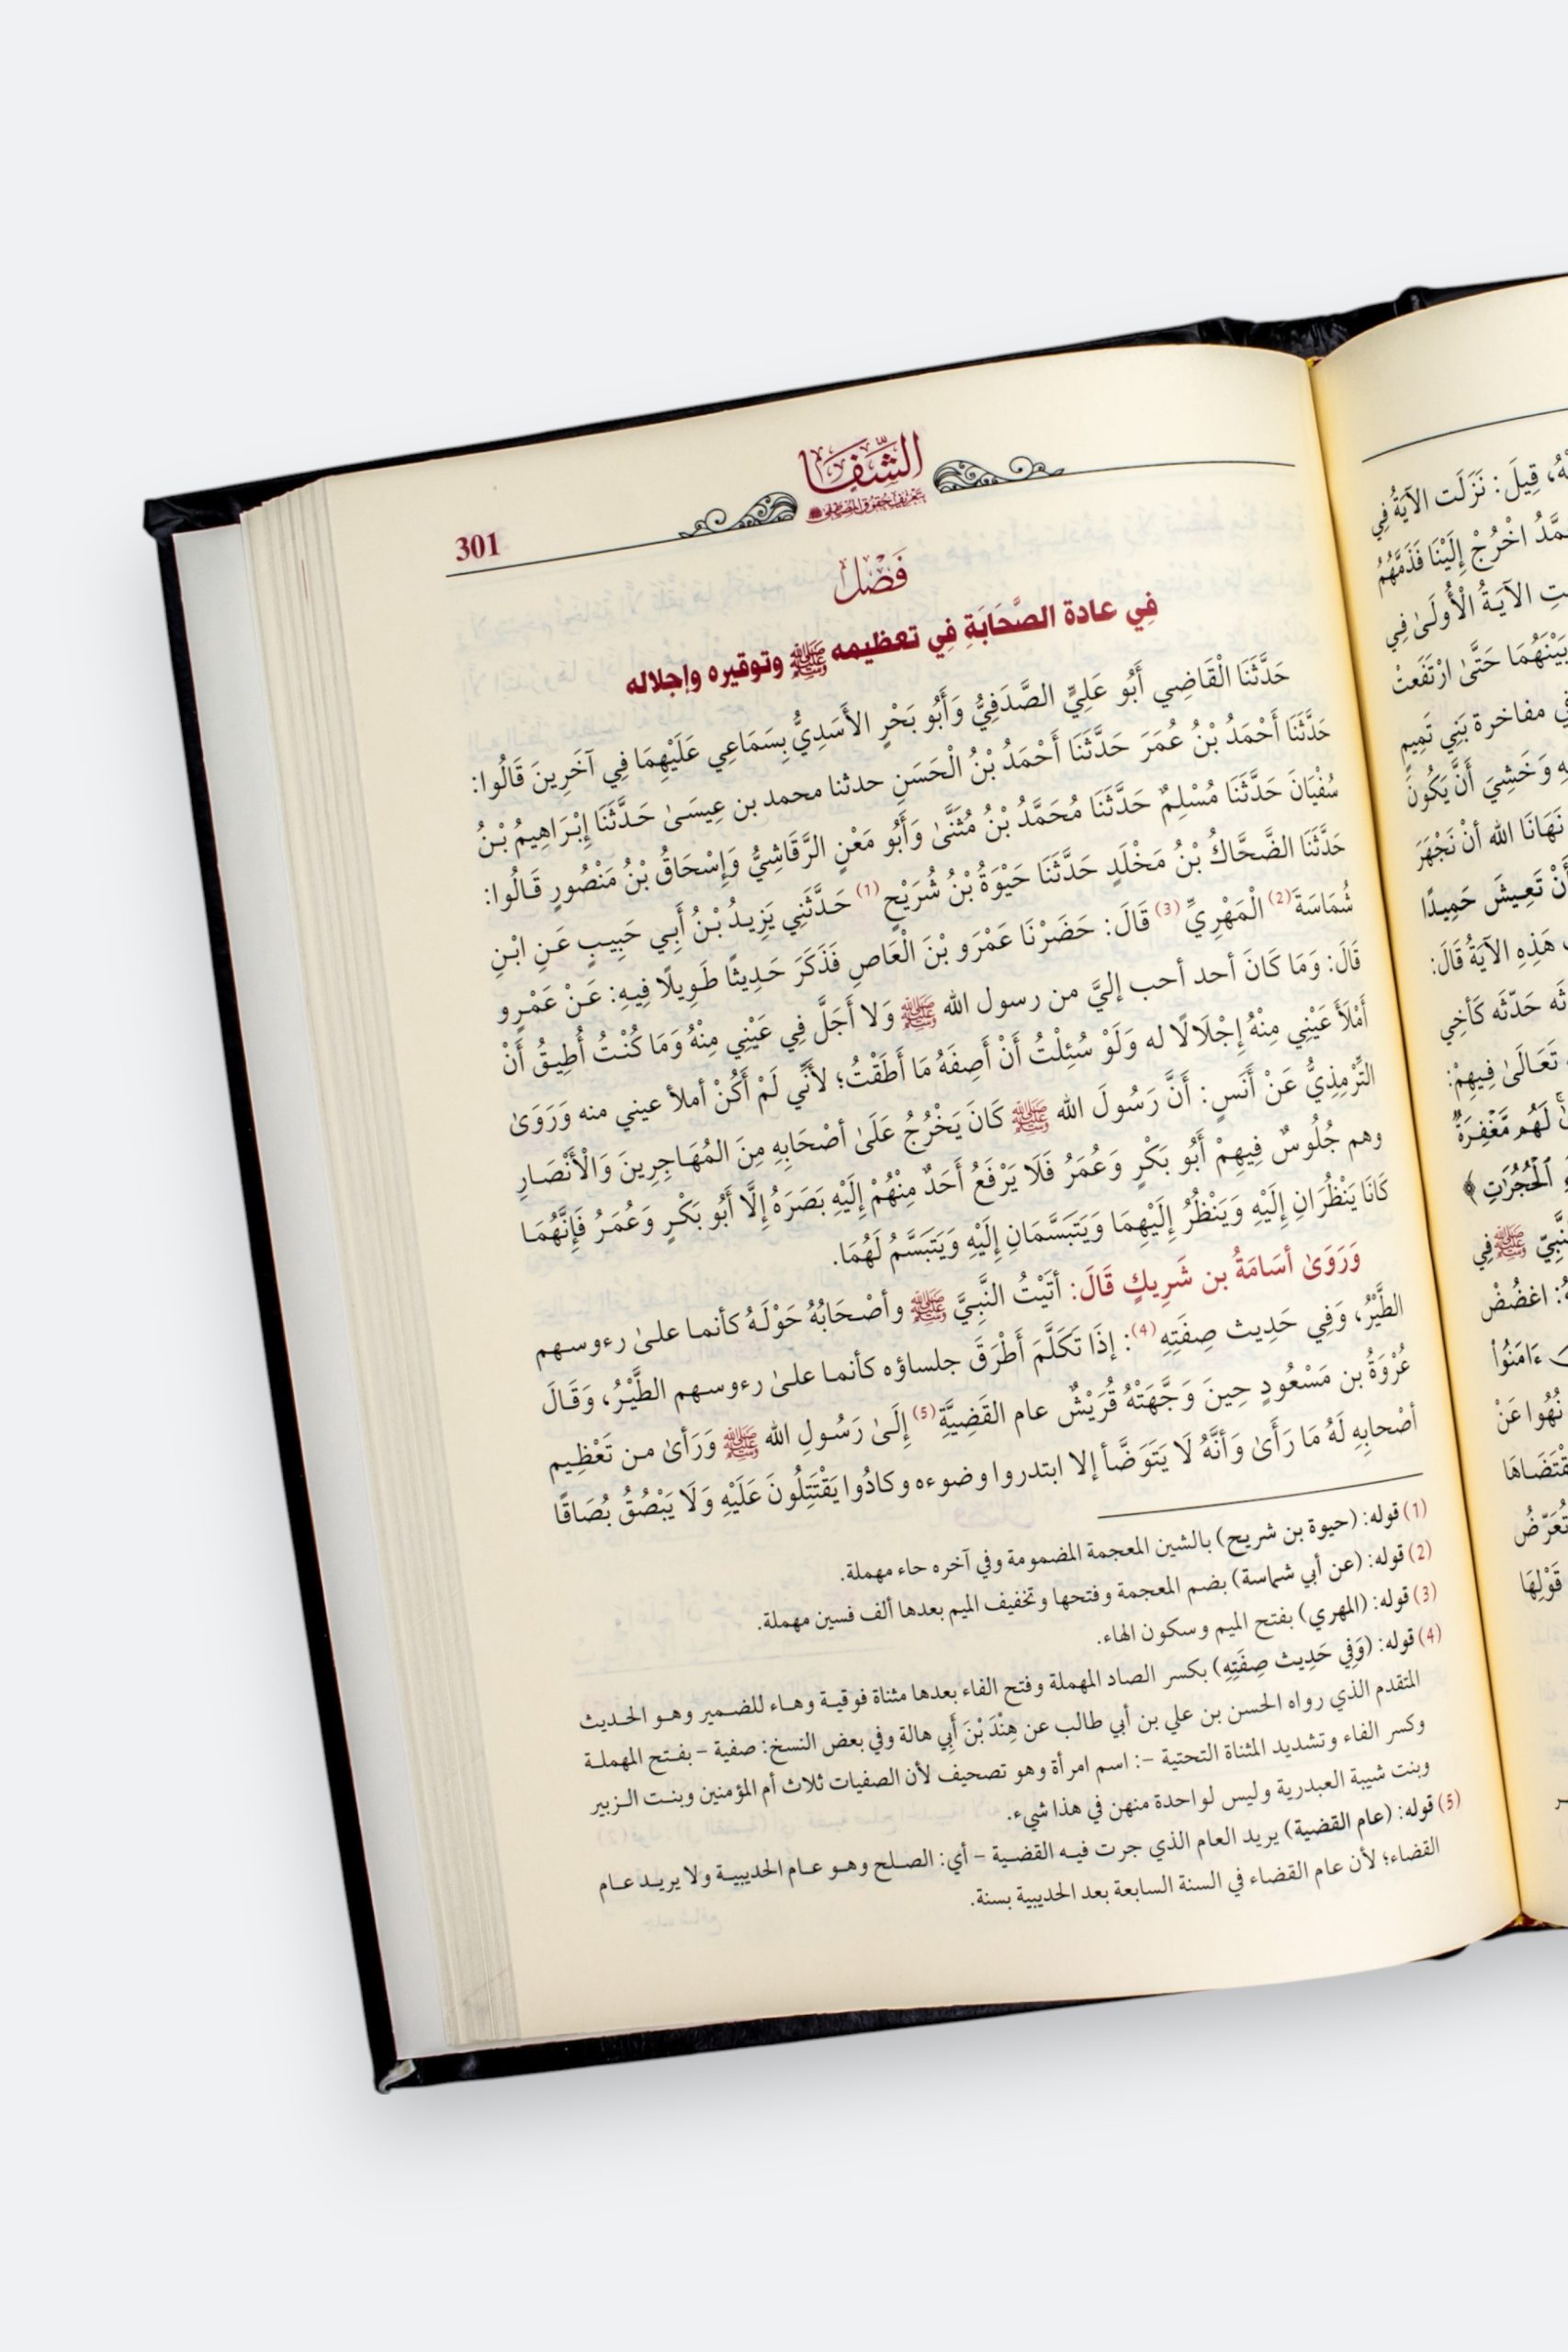 الشِّفَا
بتعريف حقوق المصطفى ﷺ
301
فَصْل
فِي عادة الصَّحَابَةِ فِي تعظيمه ﷺ وتوقيره وإجلاله
حَدَّثَنَا الْقَاضِي أَبُو عَلِيٍّ الصَّدَفِيُّ وَأَبُو بَحْرٍ الأَسَدِيُّ بِسَمَاعِي عَلَيْهِمَا فِي آخَرِينَ قَالُوا:
حَدَّثَنَا أَحْمَدُ بْنُ عُمَرَ حَدَّثَنَا أَحْمَدُ بْنُ الْحَسَنِ حدثنا محمد بن عِيسَىٰ حَدَّثَنَا إِبْرَاهِيمُ بْنُ
سُفْيَانَ حَدَّثَنَا مُسْلِمٌ حَدَّثَنَا مُحَمَّدُ بْنُ مُثَنَّىٰ وَأَبُو مَعْنٍ الرَّقَاشِيُّ وَإِسْحَاقُ بْنُ مَنْصُورٍ قَالُوا:
حَدَّثَنَا الضَّحَّاكُ بْنُ مَخْلَدٍ حَدَّثَنَا حَيْوَةُ بْنُ شُرَيْحٍ (1) حَدَّثَنِي يَزِيدُ بْنُ أَبِي حَبِيبٍ عَنِ ابْنِ
شُمَاسَةَ (2) الْمَهْرِيِّ (3) قَالَ: حَضَرْنَا عَمْرَو بْنَ الْعَاصِ فَذَكَرَ حَدِيثًا طَوِيلًا فِيهِ: عَنْ عَمْرٍو
قَالَ: وَمَا كَانَ أحد أحب إليَّ من رسول الله ﷺ وَلا أَجَلَّ فِي عَيْنِي مِنْهُ وَمَا كُنْتُ أُطِيقُ أَنْ
أَمْلَأَ عَيْنِي مِنْهُ إِجْلَالًا له وَلَوْ سُئِلْتُ أَنْ أَصِفَهُ مَا أَطَقْتُ؛ لأَنِّي لَمْ أَكُنْ أملأ عيني منه وَرَوَىٰ
التِّرْمِذِيُّ عَنْ أَنَسٍ: أَنَّ رَسُولَ الله ﷺ كَانَ يَخْرُجُ عَلَىٰ أصْحَابِهِ مِنَ المُهَاجِرِينَ وَالْأَنْصَارِ
وهم جُلُوسٌ فِيهِمْ أَبُو بَكْرٍ وَعُمَرُ فَلَا يَرْفَعُ أَحَدٌ مِنْهُمْ إِلَيْهِ بَصَرَهُ إِلَّا أَبُو بَكْرٍ وَعُمَرُ فَإِنَّهُمَا
كَانَا يَنْظُرَانِ إِلَيْهِ وَيَنْظُرُ إِلَيْهِمَا وَيَتَبَسَّمَانِ إِلَيْهِ وَيَتَبَسَّمُ لَهُمَا.
وَرَوَىٰ أسَامَةُ بن شَرِيكٍ قَالَ: أتَيْتُ النَّبِيَّ ﷺ وأصْحَابُهُ حَوْلَهُ كأنما علىٰ رءوسهم
الطَّيْرُ، وَفِي حَدِيث صِفَتِهِ (4): إذَا تَكَلَّمَ أَطْرَقَ جلساؤه كأنما علىٰ رءوسهم الطَّيْرُ، وَقَالَ
عُرْوَةُ بن مَسْعُودٍ حِينَ وَجَّهَتْهُ قُرَيْشٌ عام القَضِيَّةِ (5) إِلَىٰ رَسُولِ الله ﷺ وَرَأىٰ من تَعْظِيم
أصْحابِهِ لَهُ مَا رَأَىٰ وَأنَّهُ لَا يَتَوَضَّأ إلا ابتدروا وضوءه وكادُوا يَقْتَتِلُونَ عَلَيْهِ وَلَا يَبْصُقُ بُصَاقًا
(1) قوله: (حيوة بن شريح) بالشين المعجمة المضمومة وفي آخره حاء مهملة.
(2) قوله: (عن أبي شماسة) بضم المعجمة وفتحها وتخفيف الميم بعدها ألف فسين مهملة.
(3) قوله: (المهري) بفتح الميم وسكون الهاء.
(4) قوله: (وَفِي حَدِيث صِفَتِهِ) بكسر الصاد المهملة وفتح الفاء بعدها مثناة فوقية وهاء للضمير وهو الحديث
المتقدم الذي رواه الحسن بن علي بن أبي طالب عن هِنْدَ بْنَ أَبِي هالة وفي بعض النسخ: صفية – بفتح المهملة
وكسر الفاء وتشديد المثناة التحتية –: اسم امرأة وهو تصحيف لأن الصفيات ثلاث أم المؤمنين وبنت الزبير
وبنت شيبة العبدرية وليس لواحدة منهن في هذا شيء.
(5) قوله: (عام القضية) يريد العام الذي جرت فيه القضية – أي: الصلح وهو عام الحديبية ولا يريد عام
القضاء؛ لأن عام القضاء في السنة السابعة بعد الحديبية بسنة.
قِيلَ: نَزَلَت الآيَةُ فِي
اخْرُجْ إِلَيْنَا فَذَمَّهُمُ
الآيَةُ الْأُولَىٰ فِي
بَيْنَهُمَا حَتَّىٰ ارْتَفَعَتْ
مفاخرة بَنِي تَمِيمٍ
وَخَشِيَ أَنْ يَكُونَ
نَهَانَا الله أنْ نَجْهَرَ
أَنْ تَعِيشَ حَمِيدًا
هَذِهِ الآيَةُ قَالَ:
حَدَّثَه كَأخِي
تَعَالَىٰ فِيهِمْ:
لَهُم مَّغْفِرَةٌ
ٱلْحُجُرَٰتِ ﴾
ﷺ فِي
اغضُضْ
ءَامَنُوا۟
نُهُوا عَنْ
تَعَرّضُ
قَوْلِهَا